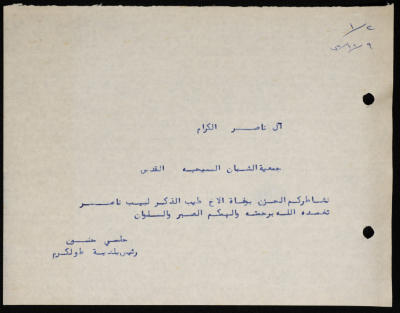 آل ناصر الكرام
جمعية الشبان المسيحيه القدس
نشاطركم الحزن بوفاة الاخ طيب الذكر لبيب ناصر
تغمده الله برحمته والهمكم الصبر والسلوان
حلمي حنون
رئيس بلدية طولكرم